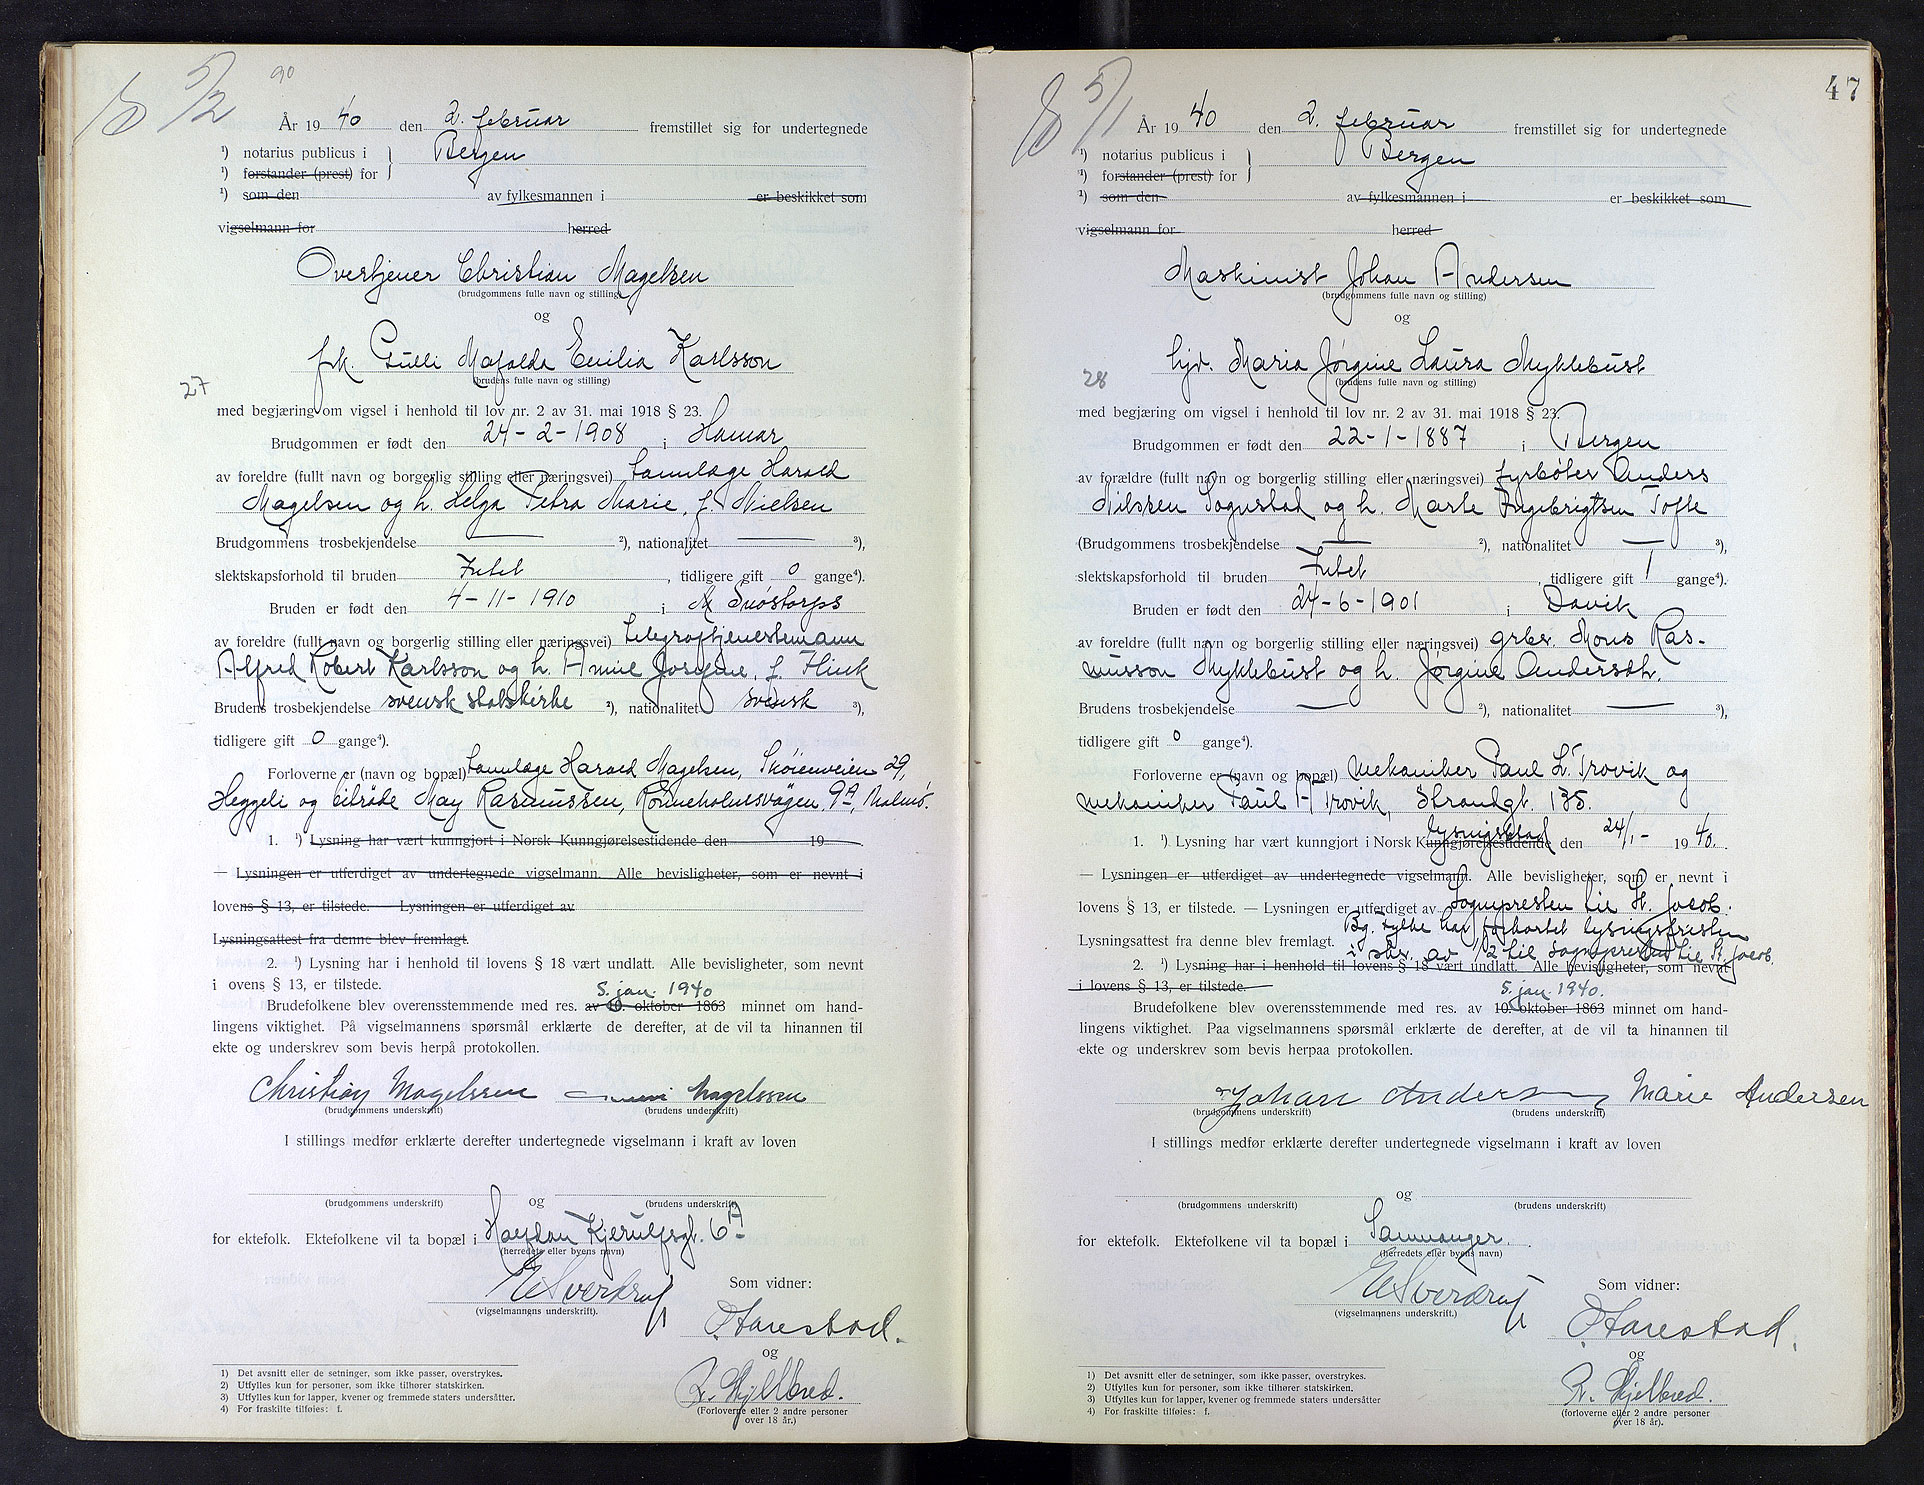 5/2
90
År 1940 den 2. februar fremstillet sig for undertegnede
¹) notarius publicus i } Bergen
¹) forstander (prest) for
¹) som den av fylkesmannen i er beskikket som
vigselmann for herred
Overtjener Christian Magelsen
(brudgommens fulle navn og stilling)
og
frk. Gulli Mafalda Emilia Karlsson
(brudens fulle navn og stilling)
27
med begjæring om vigsel i henhold til lov nr. 2 av 31. mai 1918 § 23.
Brudgommen er født den 24-2-1908 i Hamar
av foreldre (fullt navn og borgerlig stilling eller næringsvei) tannlæge Harald
Magelsen og h. Helga Petra Marie, f. Nielsen
Brudgommens trosbekjendelse — ²), nationalitet — ³),
slektskapsforhold til bruden Intet, tidligere gift 0 gange⁴).
Bruden er født den 4-11-1910 i Snöstorps
av foreldre (fullt navn og borgerlig stilling eller næringsvei) telegraftjenestemann
Alfred Robert Karlsson og h. Amie Josefine, f. Flink
Brudens trosbekjendelse svensk statskirke ²), nationalitet svensk ³),
tidligere gift 0 gange⁴).
Forloverne er (navn og bopæl) tannlæge Harald Magelsen, Skøienveien 29,
Heggeli og bitröde May Rasmussen, Rönneholmsvägen 9A, Malmö.
1. ¹) Lysning har vært kunngjort i Norsk Kunngjørelsestidende den 19
— Lysningen er utferdiget av undertegnede vigselmann. Alle bevisligheter, som er nevnt i
lovens § 13, er tilstede. — Lysningen er utferdiget av
Lysningsattest fra denne blev fremlagt.
2. ¹) Lysning har i henhold til lovens § 18 vært undlatt. Alle bevisligheter, som nevnt
i ovens § 13, er tilstede.
5. jan. 1940
Brudefolkene blev overensstemmende med res. av 10. oktober 1863 minnet om hand-
lingens viktighet. På vigselmannens spørsmål erklærte de derefter, at de vil ta hinannen til
ekte og underskrev som bevis herpå protokollen.
Christian Magelssen Magelssen
(brudgommens underskrift) (brudens underskrift)
I stillings medfør erklærte derefter undertegnede vigselmann i kraft av loven
og
(brudgommens underskrift) (brudens underskrift)
for ektefolk. Ektefolkene vil ta bopæl i Halfdan Kjerulfsgt. 6A
(herredets eller byens navn)
E Sverdrup Som vidner:
(vigselmannens underskrift).
O Harestad.
og
R. Skjelbred.
(Forloverne eller 2 andre personer
over 18 år.)
1) Det avsnitt eller de setninger, som ikke passer, overstrykes.
2) Utfylles kun for personer, som ikke tilhører statskirken.
3) Utfylles kun for lapper, kvener og fremmede staters undersåtter.
4) For fraskilte tilføies: f.
47
5/1
År 1940 den 2. februar fremstillet sig for undertegnede
¹) notarius publicus i } Bergen
¹) forstander (prest) for
¹) som den av fylkesmannen i er beskikket som
vigselmann for herred
Maskinist Johan Andersen
(brudgommens fulle navn og stilling)
og
hjv. Maria Jørgine Laura Myklebust
(brudens fulle navn og stilling)
28
med begjæring om vigsel i henhold til lov nr. 2 av 31. mai 1918 § 23.
Brudgommen er født den 22-1-1887 i Bergen
av forældre (fullt navn og borgerlig stilling eller næringsvei) fyrbøter Anders
Nilssen Sognstad og h. Marte Ingebrigtsen Tofte
(Brudgommens trosbekjendelse — ²), nationalitet — ³),
slektskapsforhold til bruden Intet, tidligere gift 1 gange⁴).
Bruden er født den 24-6-1901 i Davik
av foreldre (fullt navn og borgerlig stilling eller næringsvei) grbr. Mons Ras-
musson Myklebust og h. Jørgine Andersdtr.
Brudens trosbekjendelse — ²), nationalitet — ³),
tidligere gift 0 gange⁴).
Forloverne er (navn og bopæl) mekaniker Paul L. Trovik og
mekaniker Paul A Trovik, Strandgt. 135.
1. ¹) Lysning har vært kunngjort i Norsk Kunngjørelsestidende lysingsblad den 24/1- 1940.
— Lysningen er utferdiget av undertegnede vigselmann. Alle bevisligheter, som er nevnt i
lovens § 13, er tilstede. — Lysningen er utferdiget av Sognpresten til St. Jacob.
Bg. Fylke har forkortet lysningsfristen
Lysningsattest fra denne blev fremlagt. i skr. av 1/2 til sognpresten til St. Jacob.
2. ¹) Lysning har i henhold til lovens § 18 vært undlatt. Alle bevisligheter, som nevnt
i lovens § 13, er tilstede.
5. jan. 1940.
Brudefolkene blev overensstemmende med res. av 10. oktober 1863 minnet om hand-
lingens viktighet. Paa vigselmannens spørsmål erklærte de derefter, at de vil ta hinannen til
ekte og underskrev som bevis herpaa protokollen.
Johan Andersen Marie Andersen
(brudgommens underskrift) (brudens underskrift)
I stillings medfør erklærte derefter undertegnede vigselmann i kraft av loven
og
(brudgommens underskrift) (brudens underskrift)
for ektefolk. Ektefolkene vil ta bopæl i Samnanger.
(herredets eller byens navn)
E Sverdrup Som vidner:
(vigselmannens underskrift.)
O Harestad.
og
R. Skjelbred.
(forloverne eller 2 andre personer
over 18 år).
1) Det avsnitt eller de setninger, som ikke passer, overstrykes.
2) Utfylles kun for personer, som ikke tilhører statskirken.
3) Utfylles kun for lapper, kvener og fremmede staters undersåtter
4) For fraskilte tilføies: f.